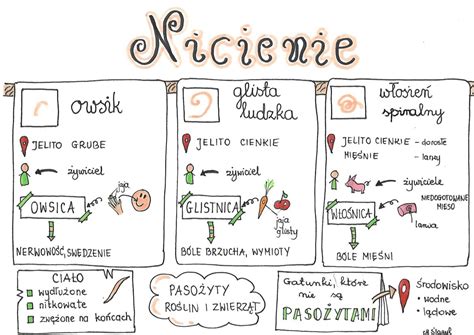 Nicienie
owsik
JELITO GRUBE
żywiciel
jaja
OWSICA
NERWOWOŚĆ, SWEDZENIE
glista
ludzka
JELITO CIENKIE
żywiciel
GLISTNICA
jaja
glisty
BÓLE BRZUCHA, WYMIOTY
włosień
spiralny
JELITO CIENKIE - dorosłe
MIĘŚNIE - larwy
żywiciele
NIEDOGOTOWANE
MIĘSO
WŁOŚNICA
larwa
BÓLE MIĘŚNI
CIAŁO
wydłużone
nitkowate
zwężone na końcach
PASOŻYTY
ROŚLIN I ZWIERZĄT
Gatunki, które
nie są
PASOŻYTAMI
Środowisko
• wodne
• lądowe